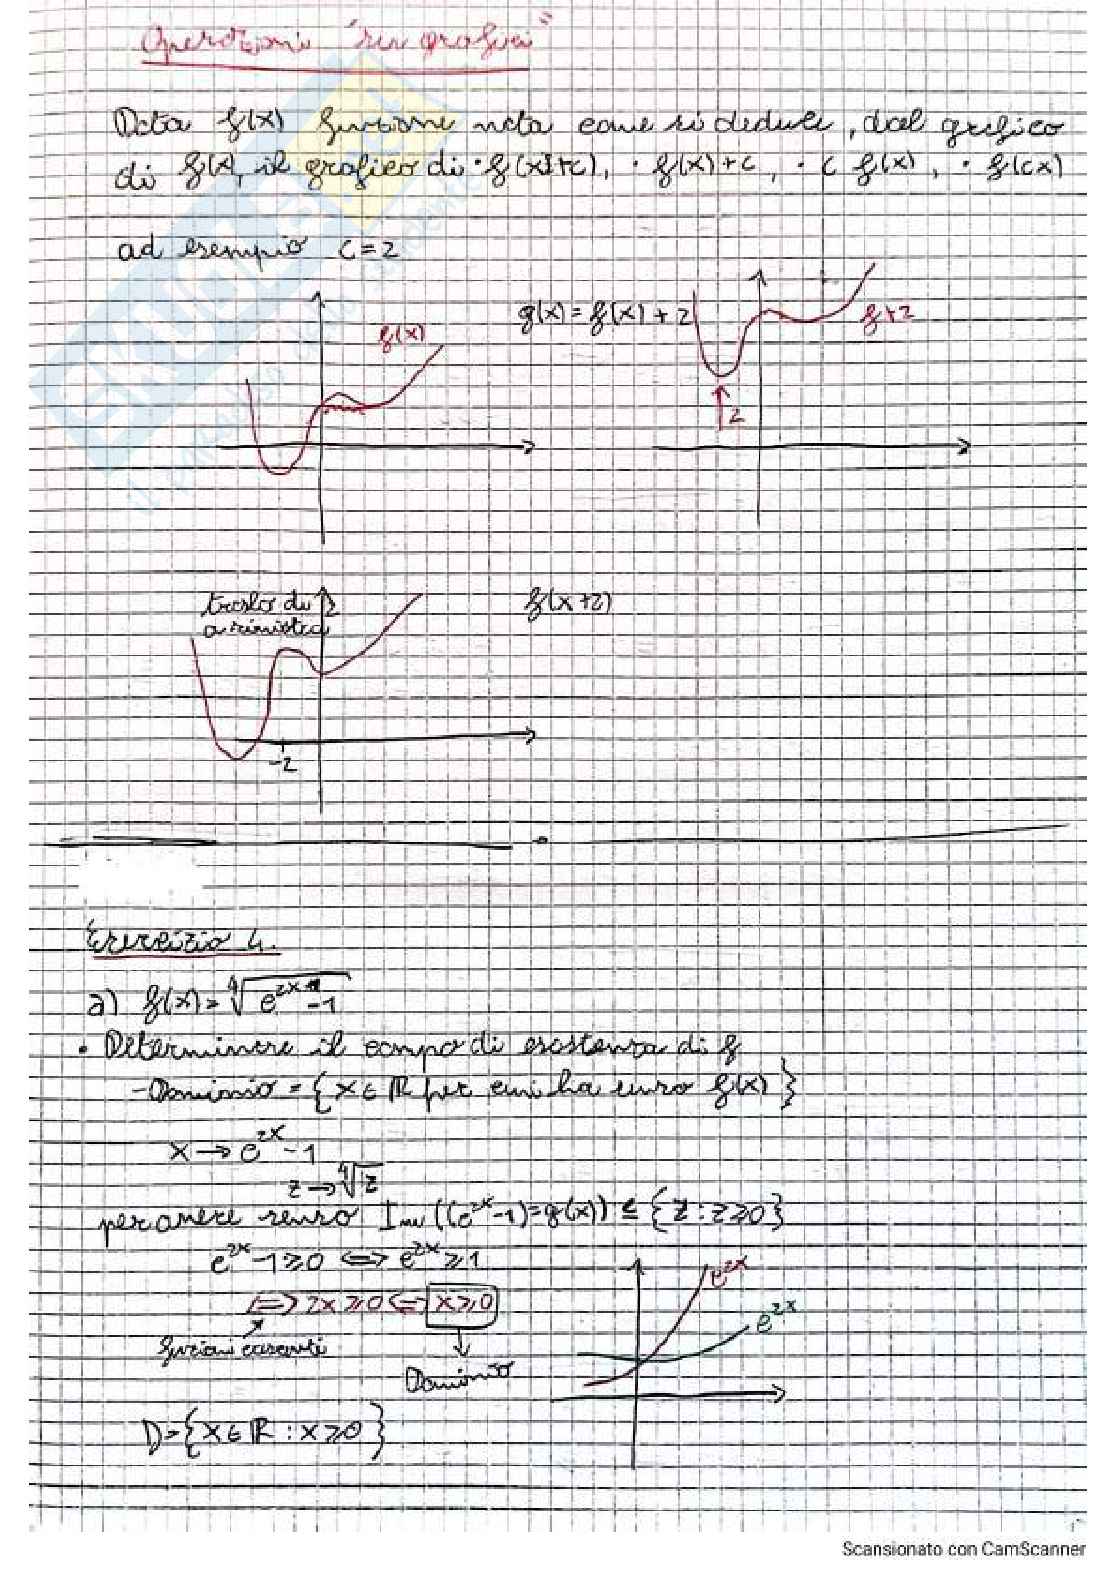 Operazioni "sui grafici"
Data f(x) funzione nota come si deduce, dal grafico
di f(x), il grafico di • f(x+c), • f(x)+c, • c f(x), • f(cx)
ad esempio c=2
f(x)
g(x)=f(x)+2
f+2
2
traslo di 2
a sinistra
f(x+2)
-2
Esercizio 4.
a) f(x)=∜(e^2x -1)
• Determinare il campo di esistenza di f
-Dominio = {x∈ℝ per cui ha senso f(x)}
x→e^2x -1
z→∜z
per avere senso Im((e^2x-1)=g(x)) ⊆ {z:z≥0}
e^2x -1≥0 ⟺ e^2x ≥1
⟺ 2x≥0 ⟺ x≥0
funzioni crescenti
Dominio
e^2x
e^2x
D={x∈ℝ : x≥0}
Scansionato con CamScanner